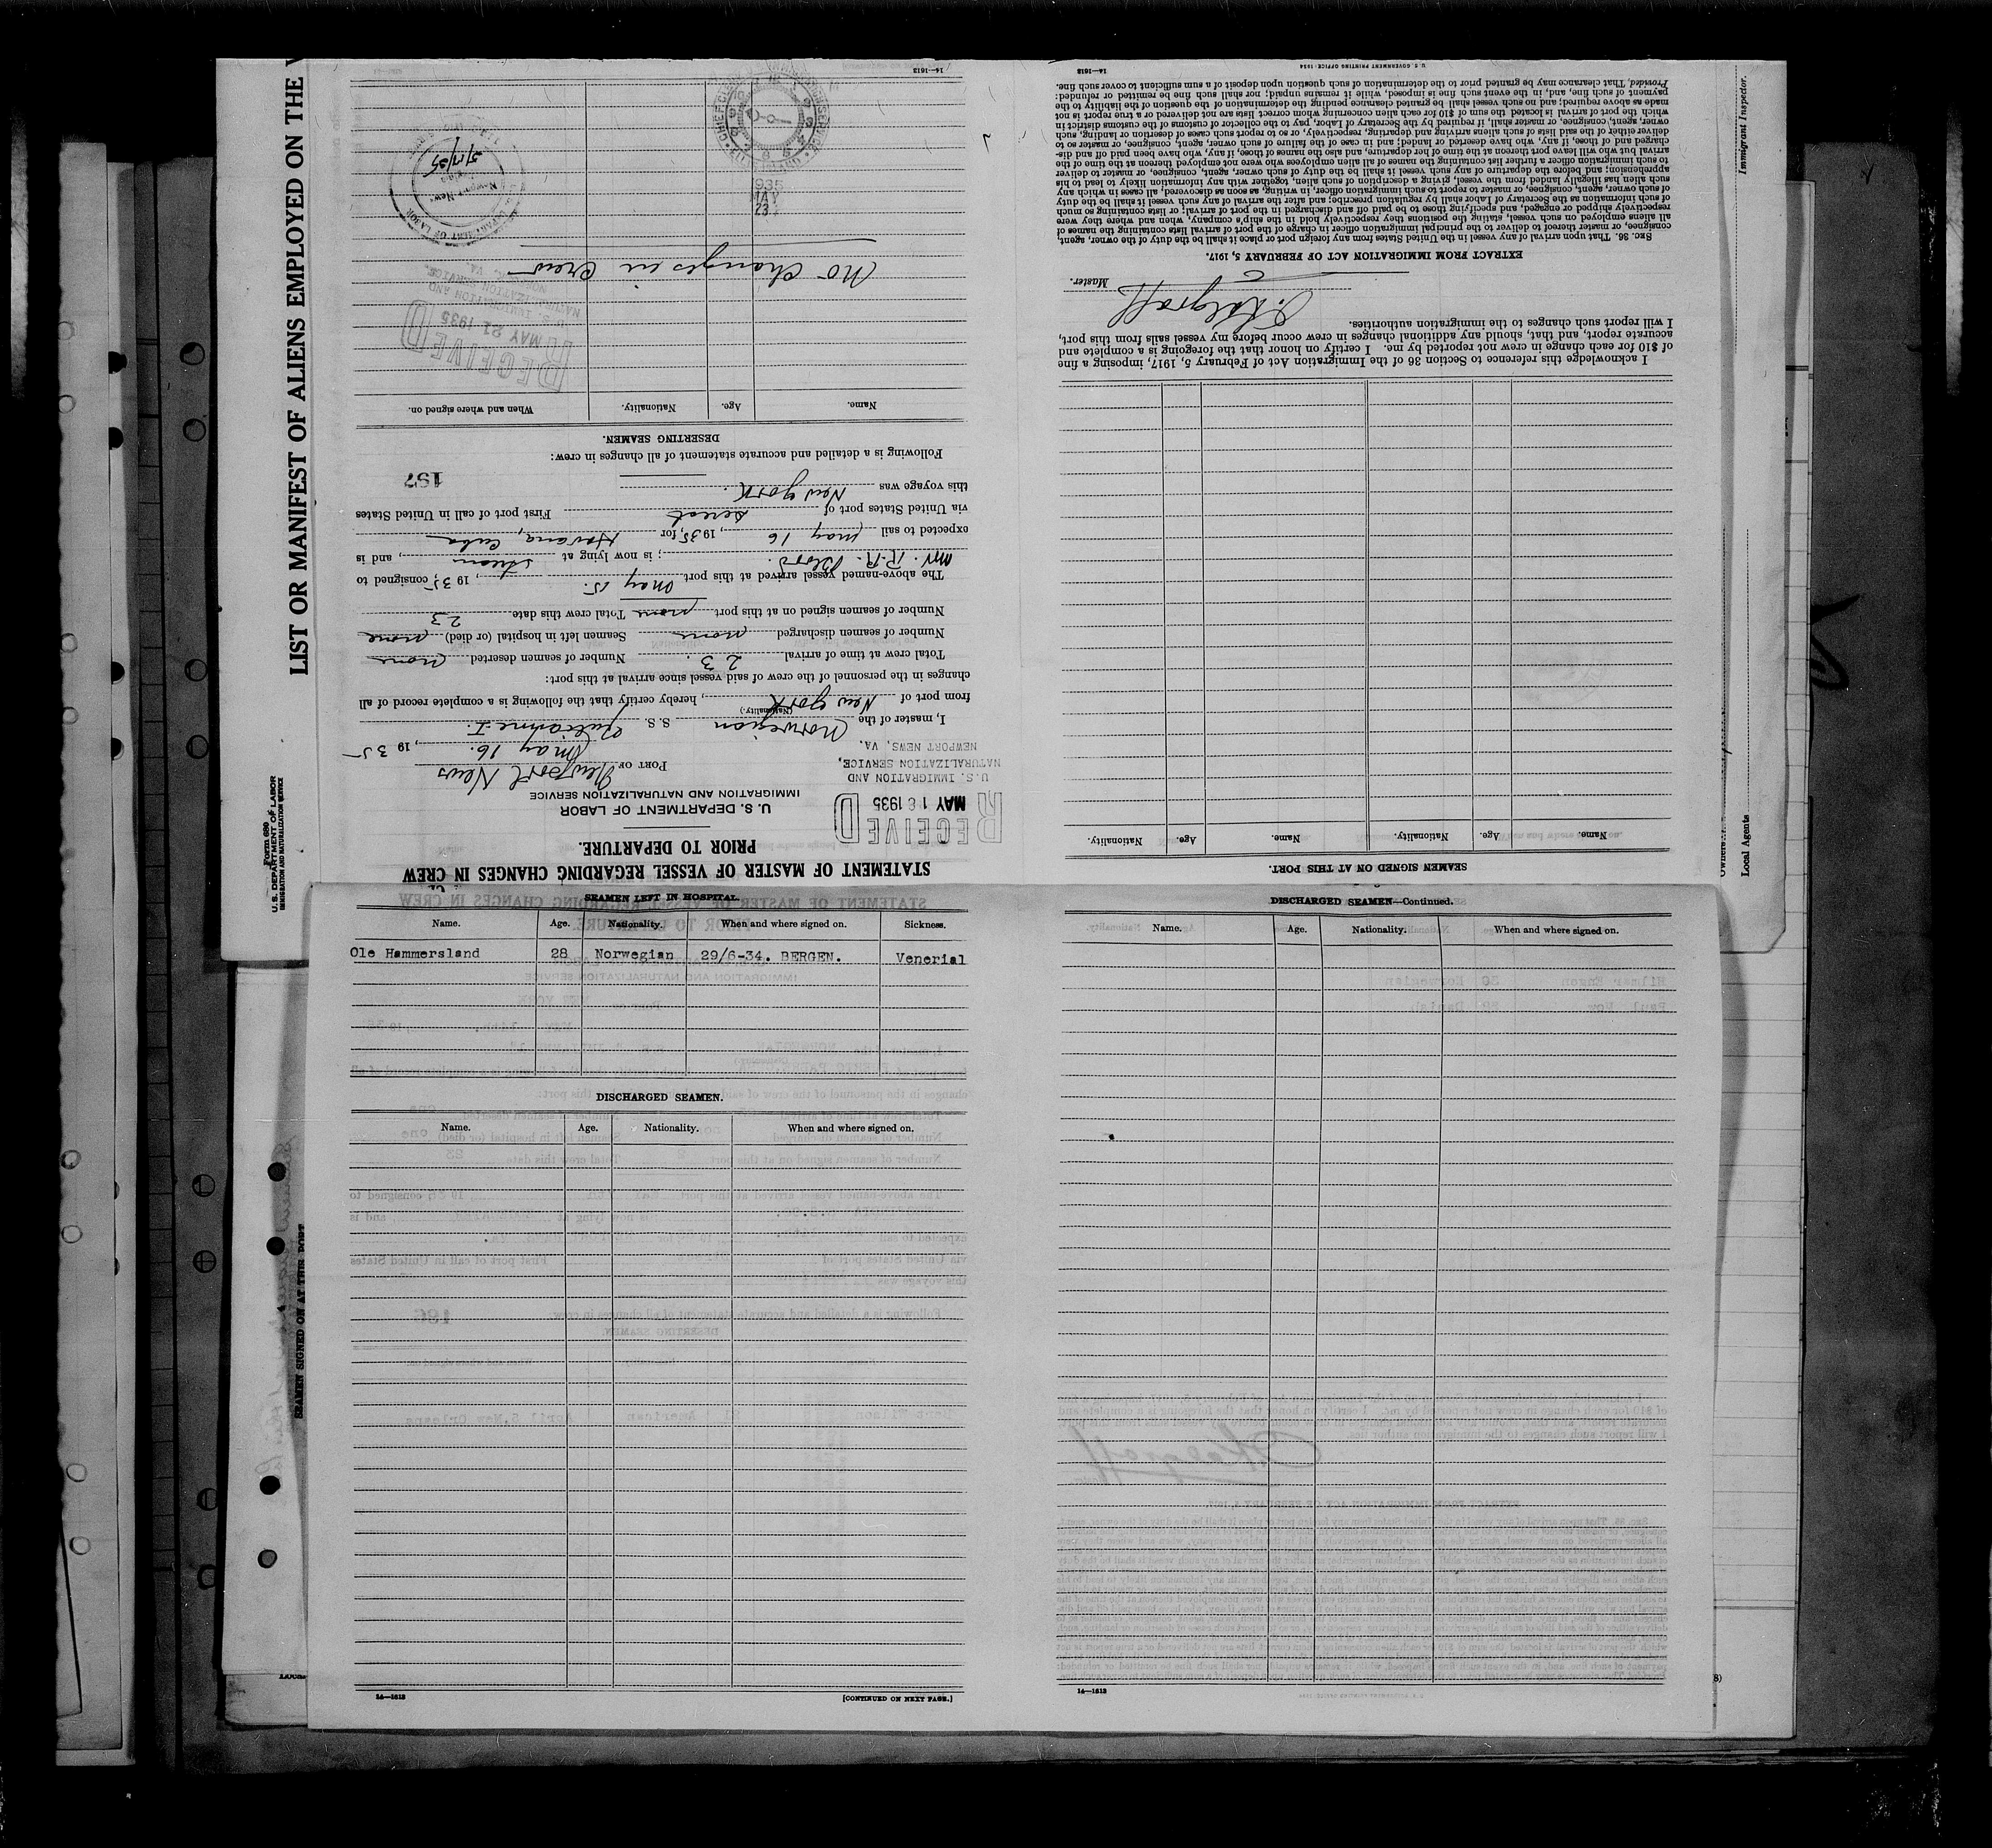 LIST OR MANIFEST OF ALIENS EMPLOYED ON THE
Form 680
U.S. DEPARTMENT OF LABOR
IMMIGRATION AND NATURALIZATION SERVICE
SEAMEN SIGNED ON AT THIS PORT
STATEMENT OF MASTER OF VESSEL REGARDING CHANGES IN CREW
PRIOR TO DEPARTURE.
U. S. DEPARTMENT OF LABOR
IMMIGRATION AND NATURALIZATION SERVICE
RECEIVED
MAY 16 1935
U.S. IMMIGRATION AND
NATURALIZATION SERVICE,
NEWPORT NEWS, VA.
PORT OF Newport News
May 16. , 1935
I, master of the Norwegian S. S. Julianne I.
(Nationality.)
from port of New York , hereby certify that the following is a complete record of all
changes in the personnel of the crew of said vessel since arrival at this port:
Total crew at time of arrival 23. Number of seamen deserted None
Number of seamen discharged none Seamen left in hospital (or died) none
Number of seamen signed on at this port none Total crew this date 23
The above-named vessel arrived at this port May 15. , 1935, consigned to
Mr. R.R. ; is now lying at stream , and is
expected to sail May 16 , 1935, for Havana, Cuba
via United States port of direct First port of call in United States
this voyage was New York.
197
Following is a detailed and accurate statement of all changes in crew:
DESERTING SEAMEN.
Name. Age. Nationality. When and where signed on.
RECEIVED
MAY 21 1935
U.S. IMMIGRATION AND
NATURALIZATION SERVICE
NORFOLK, VA.
No changes in Crew
1935
MAY
23
Newport News
5/17/35
DEPARTMENT OF LABOR
14—1613
SEAMEN SIGNED ON AT THIS PORT.
Name. Age. Nationality. Name. Age. Nationality.
I acknowledge this reference to Section 36 of the Immigration Act of February 5, 1917, imposing a fine
of $10 for each change in crew not reported by me. I certify on honor that the foregoing is a complete and
accurate report, and that, should any additional changes in crew occur before my vessel sails from this port,
I will report such changes to the immigration authorities.
Master.
EXTRACT FROM IMMIGRATION ACT OF FEBRUARY 5, 1917.
SEC. 36. That upon arrival of any vessel in the United States from any foreign port or place it shall be the duty of the owner, agent,
consignee, or master thereof to deliver to the principal immigration officer in charge of the port of arrival lists containing the names of
all aliens employed on such vessel, stating the positions they respectively hold in the ship's company, when and where they were
respectively shipped or engaged, and specifying those to be paid off and discharged in the port of arrival; or lists containing so much
of such information as the Secretary of Labor shall by regulation prescribe; and after the arrival of any such vessel it shall be the duty
of such owner, agent, consignee, or master to report to such immigration officer, in writing, as soon as discovered, all cases in which any
such alien has illegally landed from the vessel, giving a description of such alien, together with any information likely to lead to his
apprehension; and before the departure of any such vessel it shall be the duty of such owner, agent, consignee, or master to deliver
to such immigration officer a further list containing the names of all alien employees who were not employed thereon at the time of the
arrival but who will leave port thereon at the time of her departure, and also the names of those, if any, who have been paid off and dis-
charged and of those, if any, who have deserted or landed; and in case of the failure of such owner, agent, consignee, or master so to
deliver either of the said lists of such aliens arriving and departing, respectively, or so to report such cases of desertion or landing, such
owner, agent, consignee, or master, shall, if required by the Secretary of Labor, pay to the collector of customs of the customs district in
which the port of arrival is located the sum of $10 for each alien concerning whom correct lists are not delivered or a true report is not
made as above required; and no such vessel shall be granted clearance pending the determination of the question of the liability to the
payment of such fine, and, in the event such fine is imposed, while it remains unpaid; nor shall such fine be remitted or refunded:
Provided, That clearance may be granted prior to the determination of such question upon deposit of a sum sufficient to cover such fine.
U. S. GOVERNMENT PRINTING OFFICE: 1934
14—1613
Immigrant Inspector.
Owners
Local Agents
SEAMEN LEFT IN HOSPITAL.
Name. Age. Nationality. When and where signed on. Sickness.
Ole Hammersland 28 Norwegian 29/6-34. BERGEN. Venerial
DISCHARGED SEAMEN.
Name. Age. Nationality. When and where signed on.
14—1613
[CONTINUED ON NEXT PAGE.]
DISCHARGED SEAMEN—Continued.
Name. Age. Nationality. When and where signed on.
14—1613